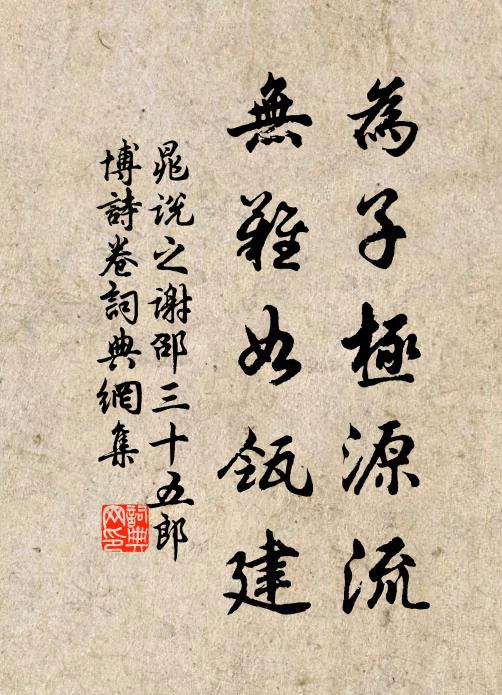 為子極源流
無難如瓴建
晁說之謝邵三十五郎
博詩卷詞典網集
詞典網印